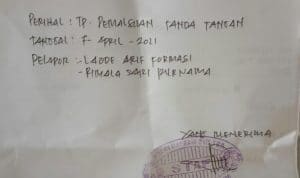 PERIHAL : TP. PEMALSUAN TANDA TANGAN
TANGGAL : 7 - APRIL - 2021
PELAPOR : - LAODE ARIF FORMASI
- RIMALA SARI PURNAMA
YANG MENERIMA